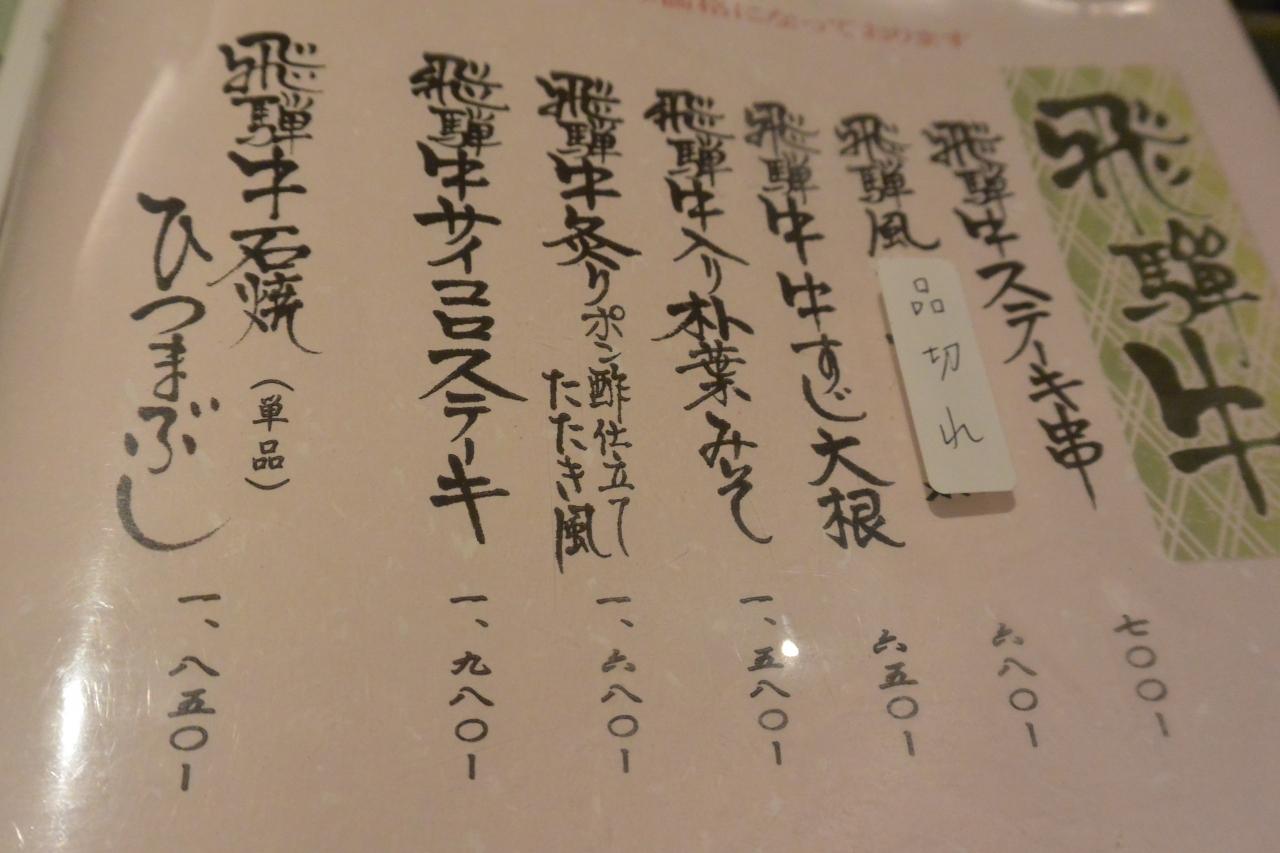 価格になっております
飛騨牛
飛騨牛ステーキ串
七〇〇ー
飛騨風
品切れ
六八〇ー
飛騨牛牛すじ大根
六五〇ー
飛騨牛入り朴葉みそ
一、五八〇ー
飛騨牛炙りポン酢仕立て
たたき風
一、六八〇ー
飛騨牛サイコロステーキ
一、九八〇ー
飛騨牛石焼(単品)
ひつまぶし
一、八五〇ー